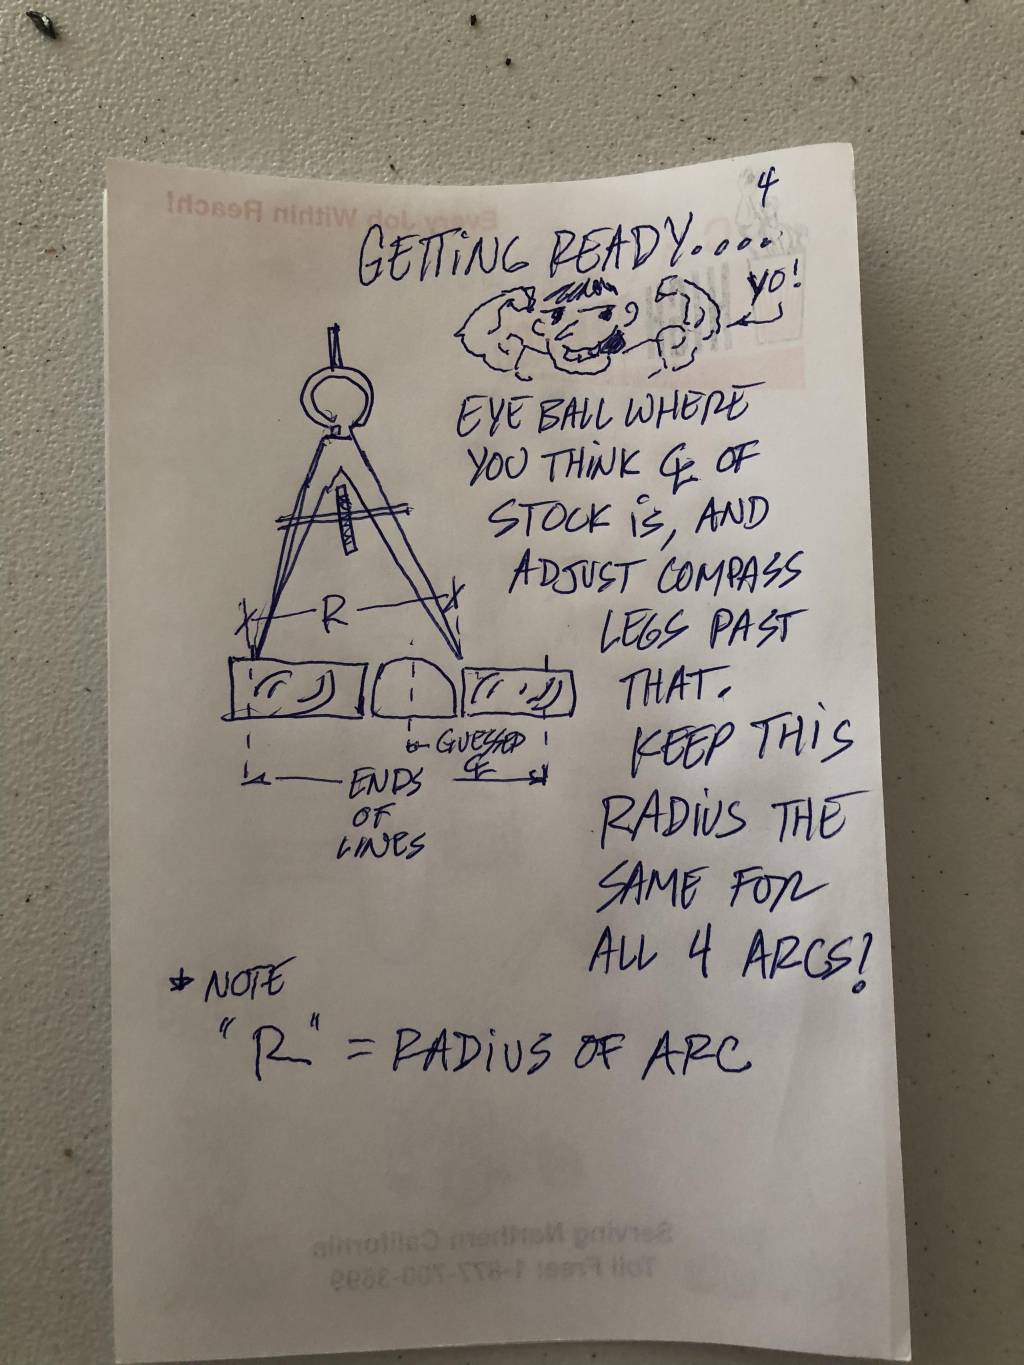 4
GETTING READY....
YO!
EYE BALL WHERE
YOU THINK ℄ OF
STOCK iS, AND
ADJUST COMPASS
LEGS PAST
THAT.
KEEP THiS
RADiUS THE
SAME FOR
ALL 4 ARCS!
X R X
GUESSED
℄
ENDS
OF
LINES
* NOTE
"R" = RADiUS OF ARC
Every Job Within Reach!
Serving Northern California